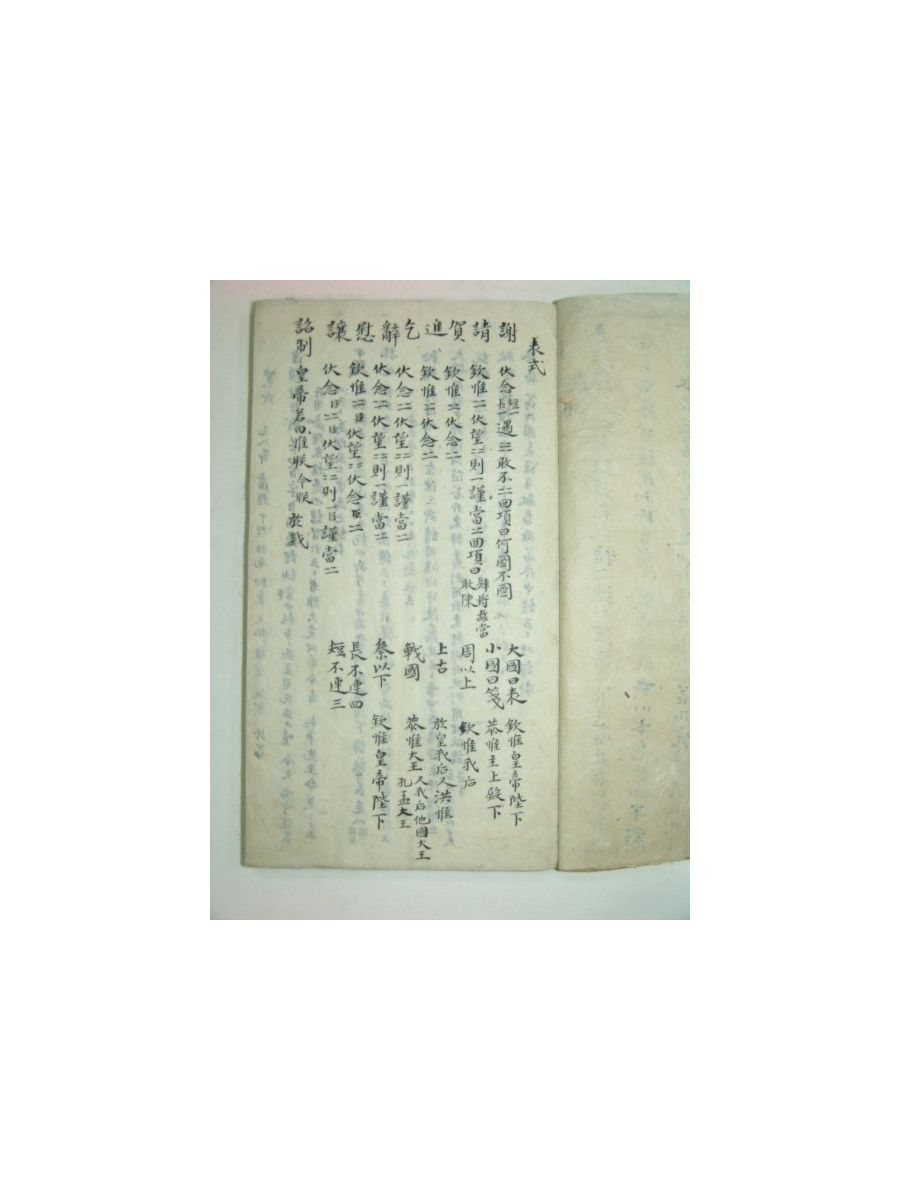 表式
謝 伏念短一長一遇二三敢不二回項曰何圖不圖
請 欽惟二伏望二則一謹當二回項曰敢陳
賀 欽惟二伏念二
進 欽惟二伏念二
乞 伏念二伏望二則一謹當二
辭 伏念二伏望二則一謹當二
慰 欽惟二伏望二伏念臣二
讓 伏念二伏望二則一謹當二
詔制 皇帝若曰惟朕今朕於戱
大國曰表 欽惟皇帝陛下
小國曰箋 恭惟主上殿下
周以上 欽惟我后
上古 放皇我后又洪惟
戰國 恭惟大王又我后他國大王孔孟大王
秦以下 欽惟皇帝陛下
長不連四
短不連三